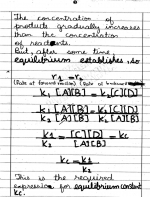 The concentration of
products gradually increases
than the concentration
of reactants.
But, after some time,
equilibrium establishes, so
r₁ = r₂
(Rate of forward reaction) (Rate of backward
k₁ [A][B] = k₂ [C][D]
k₁ [A][B] = k₂ [C][D]
k₂ [A][B] k₂ [A][B]
k₁ = [C][D] = kc
k₂ [A][B]
kc = k₁
k₂
This is the required
expression for equilibrium constant
kc.